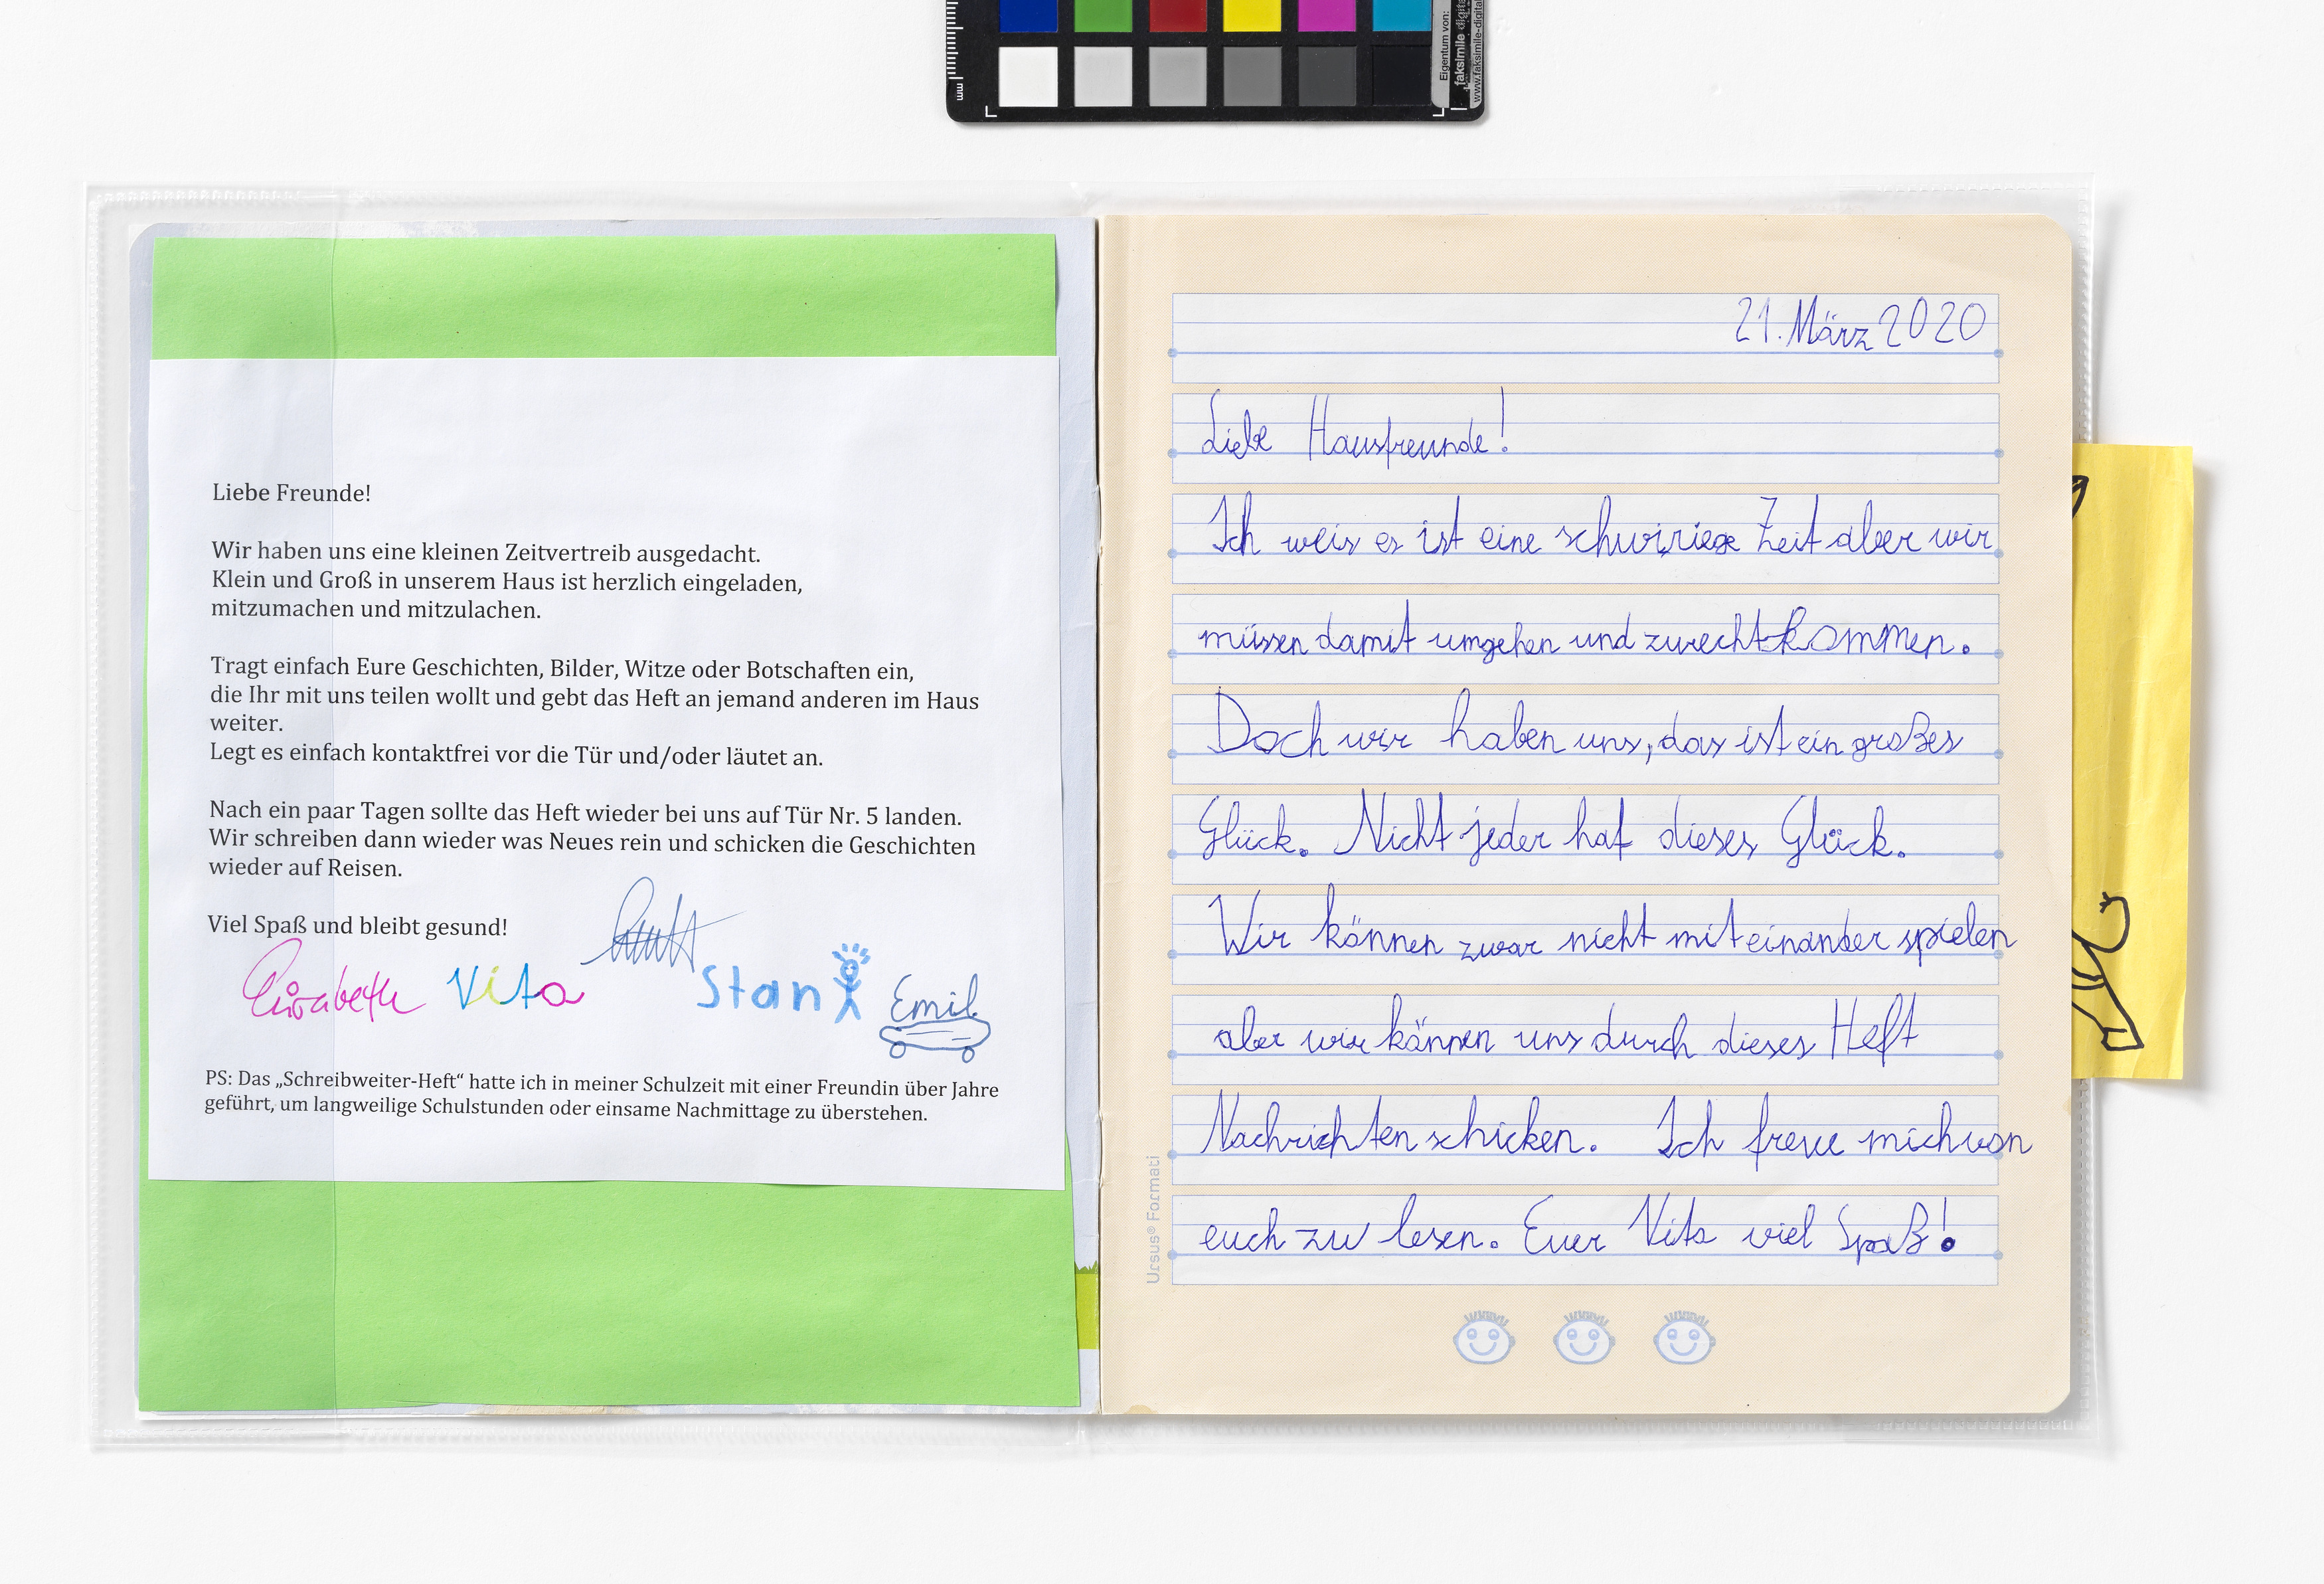 mm
Eigentum von:
faksimile digital
www.faksimile-digital
Liebe Freunde!
Wir haben uns eine kleinen Zeitvertreib ausgedacht.
Klein und Groß in unserem Haus ist herzlich eingeladen,
mitzumachen und mitzulachen.
Tragt einfach Eure Geschichten, Bilder, Witze oder Botschaften ein,
die Ihr mit uns teilen wollt und gebt das Heft an jemand anderen im Haus
weiter.
Legt es einfach kontaktfrei vor die Tür und/oder läutet an.
Nach ein paar Tagen sollte das Heft wieder bei uns auf Tür Nr. 5 landen.
Wir schreiben dann wieder was Neues rein und schicken die Geschichten
wieder auf Reisen.
Viel Spaß und bleibt gesund!
Elisabeth Vita Stan Emil
PS: Das „Schreibweiter-Heft“ hatte ich in meiner Schulzeit mit einer Freundin über Jahre
geführt, um langweilige Schulstunden oder einsame Nachmittage zu überstehen.
21. März 2020
Liebe Hausfreunde!
Ich weis es ist eine schwiriege Zeit aber wir
müssen damit umgehen und zurechtkommen.
Doch wir haben uns, das ist ein großes
Glück. Nicht jeder hat dieses Glück.
Wir können zwar nicht miteinander spielen
aber wir können uns durch dieses Heft
Nachrichten schicken. Ich freue mich von
euch zu lesen. Euer Vita viel Spaß!
Ursus® Formati